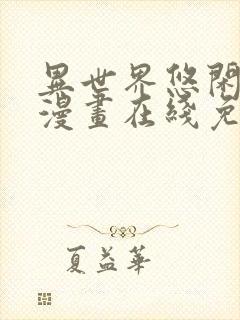 異世界悠閑
漫畫在綫免
夏益華